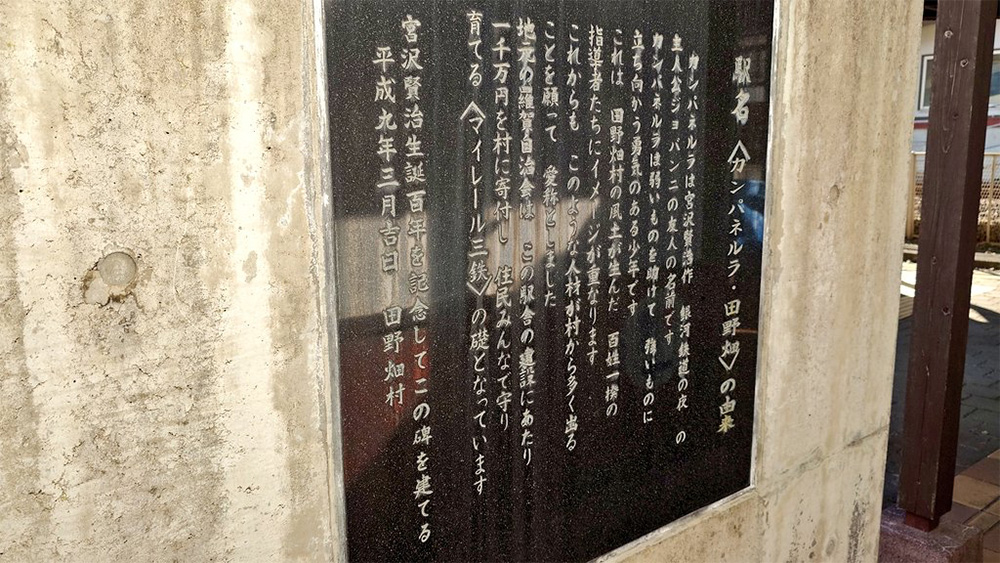 駅名〈カンパネルラ・田野畑〉の由来
カンパネルラは宮沢賢治作 銀河鉄道の夜 の
主人公ジョバンニの友人の名前です
カンパネルラは弱いものを助けて 強いものに
立ち向かう勇気のある少年です
これは 田野畑村の風土が生んだ 百姓一揆の
指導者たちにイメージが重なります
これからも このような人材が村から多く出る
ことを願って 愛称としました
地元の羅賀自治会は この駅舎の建設にあたり
一千万円を村に寄付し 住民みんなで守り
育てる〈マイレール三鉄〉の礎となっています
宮沢賢治生誕百年を記念してこの碑を建てる
平成九年三月吉日 田野畑村